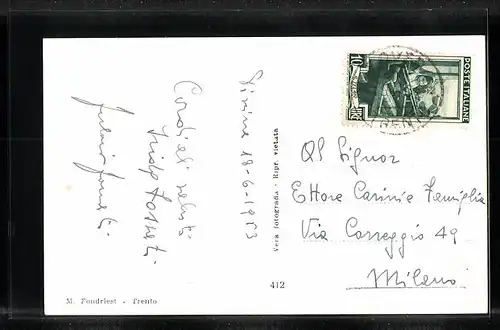 18-6-1953
Cordiali saluti
POSTE ITALIANE
LIRE 10
Vera fotografia - Ripr. vietata
Al Signor
Ettore Carini e Famiglia
Via Correggio 49
Milano
412
M. Fondriest - Trento